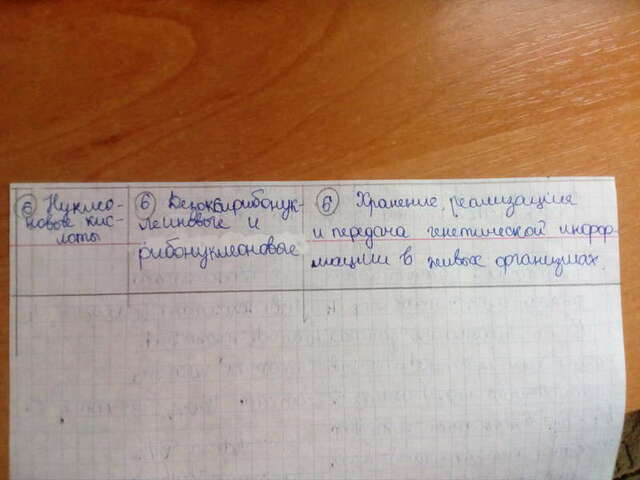 6 Нуклео-
новые кис-
лоты
6 Дезоксирибонук-
леиновые и
рибонуклеоновые
6 Хранение, реализация
и передача генетической инфор-
мации в живых организмах.